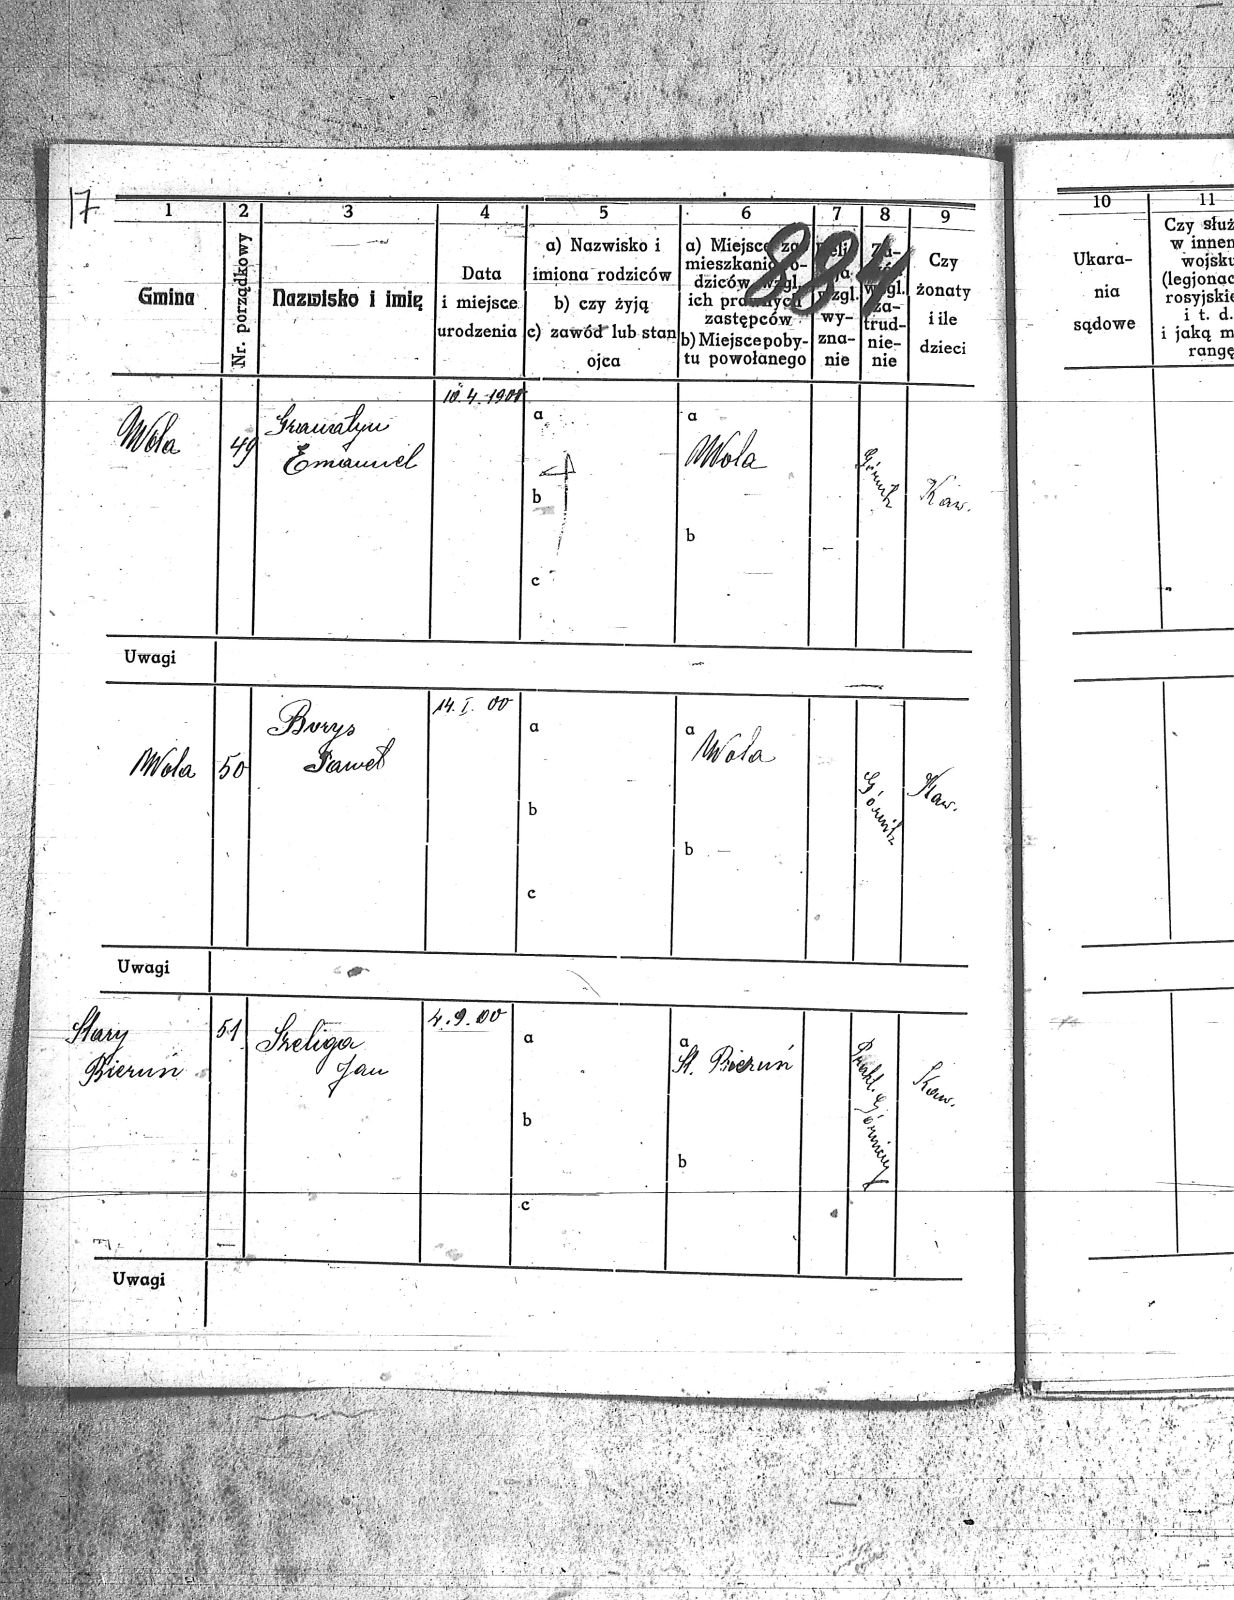 17
884
1 2 3 4 5 6 7 8 9
Gmina
Nr. porządkowy
Nazwisko i imię
Data
i miejsce
urodzenia
a) Nazwisko i
imiona rodziców
b) czy żyją
c) zawód lub stan
ojca
a) Miejsce za-
mieszkania ro-
dziców wzgl.
ich prawnych
zastępców
b) Miejsce poby-
tu powołanego
wzgl.
wy-
zna-
nie
Za-
wzgl.
za-
trud-
nie-
nie
Czy
żonaty
i ile
dzieci
10 11
Ukara-
nia
sądowe
Czy służ
w innem
wojsku
(legjonac
rosyjskie
i t. d.
i jaką m
rangę
Wola
49
Emanuel
10.4.1900
a
b
c
a
Wola
b
Górnik
Kaw.
Uwagi
Wola
50
Borys
Paweł
14. I. 00
a
b
c
a
Wola
b
Górnik
Kaw.
Uwagi
Stary
Bieruń
51
Szeliga
Jan
4.9.00
a
b
c
a
St. Bieruń
b
Kaw.
Uwagi